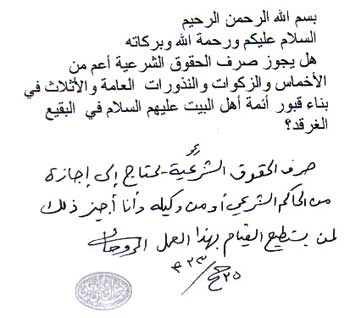 بسم الله الرحمن الرحيم
السلام عليكم ورحمة الله وبركاته
هل يجوز صرف الحقوق الشرعية أعم من
الأخماس والزكوات والنذورات العامة والأثلاث في
بناء قبور أئمة أهل البيت عليهم السلام في البقيع
الغرقد؟
صرف الحقوق الشرعية يحتاج إلى إجازة
من الحاكم الشرعي أو من وكيله وأنا أجيز ذلك
لمن يستطيع القيام بهذا العمل